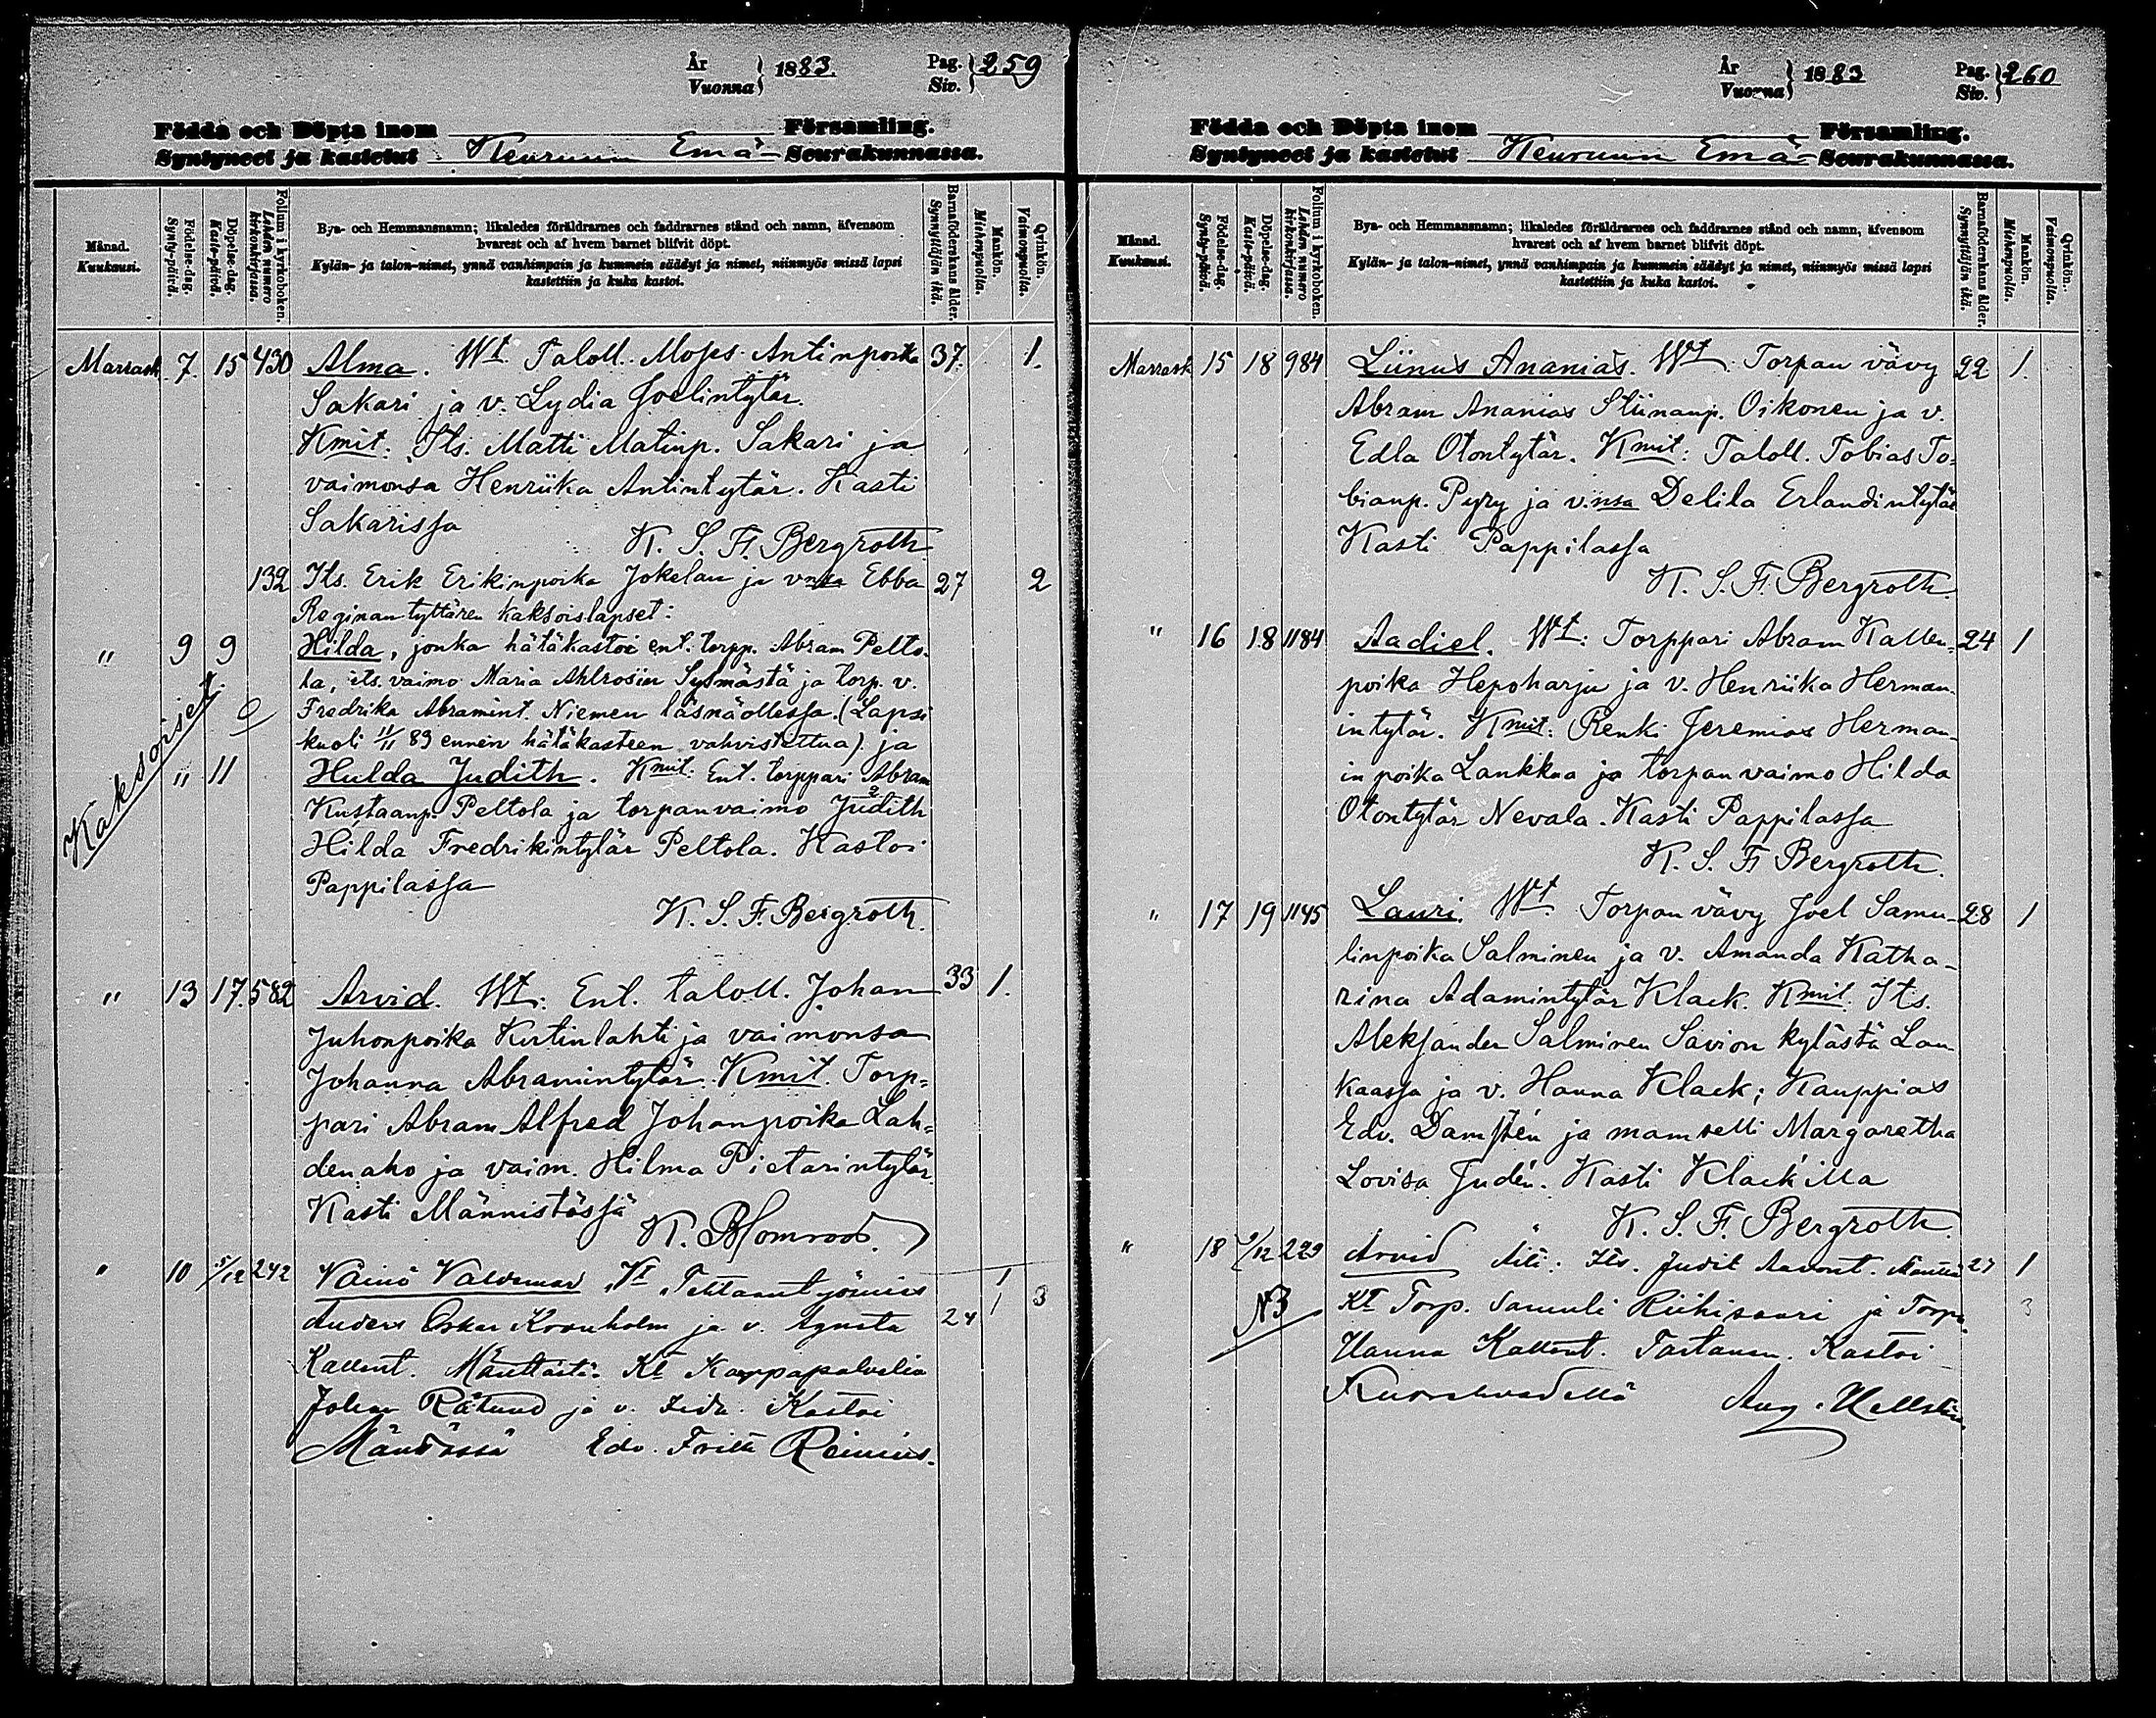 År
Vuonna 1883.
Pag.
Siv. 259
Födda och Döpta inom Församling.
Syntyneet ja kastetut Keuruun Emä- Seurakunnassa.
Månad.
Kuukausi.
Födelse-dag.
Synty-päivä.
Döpelse-dag.
Kaste-päivä.
Folium i kyrkoboken.
Lehden numero kirkonkirjassa.
Bya- och Hemmansnamn; likaledes föräldrarnes och faddrarnes stånd och namn, äfvensom
hvarest och af hvem barnet blifvit döpt.
Kylän- ja talon-nimet, ynnä vanhimpain ja kummein säädyt ja nimet, niinmyös missä lapsi
kastettiin ja kuka kastoi.
Barnaföderskans ålder.
Synnyttäjän ikä.
Mankön.
Miehenpuolia.
Qvinkön.
Vaimonpuolia.
Marrask. 7. 15 430 Alma. Wt. Taloll. Moses Antinpoika 37. 1.
Sakari ja v. Lydia Joelintytär.
Kmit. Its. Matti Matinp. Sakari ja
vaimonsa Henriika Antintytär. Kasti
Sakarissa
K. S. F. Bergroth
132 Its. Erik Erikinpoika Jokelan ja vnsa Ebba 27 2
Reginantyttären kaksoislapset:
" 9 9 Hilda, jonka hätäkastoi ent. torpp. Abram Pelto-
la, its. vaimo Maria Ahlrosin Sysmästä ja torp. v.
Fredrika Abramint. Niemen läsnäollessa. (Lapsi
kuoli 11/11 83 ennen hätäkasteen vahvistettua) ja
Kaksoiset.
" 11 Hulda Judith. Kmit: Ent. torppari Abram
Kustaanp. Peltola ja torpanvaimo Judith
Hilda Fredrikintytär Peltola. Kastoi
Pappilassa
K. S. F. Bergroth.
" 13 17. 582 Arvid. Wt: Ent. taloll. Johan 33 1.
Juhonpoika Kertinlahti ja vaimonsa
Johanna Abramintytär. Kmit. Torp=
pari Abram Alfred Johanpoika Lah=
denaho ja vaim. Hilma Pietarintytär
Kasti Männistössä
K. Blomroos.
" 10 5/12 242 Väinö Valdemar Vt Tehtaantyömies 1
Anders Oskar Kronholm ja v. Agusta 24 1 3
Kallent. Mänttästä. Kt Kauppapalvelia
Johan Rålund ja v. Ida. Kastoi
Mäntässä Edv. Frith Reinius.
År
Vuonna 1883
Pag.
Siv. 260
Födda och Döpta inom Församling.
Syntyneet ja kastetut Keuruun Emä- Seurakunnassa.
Månad.
Kuukausi.
Födelse-dag.
Synty-päivä.
Döpelse-dag.
Kaste-päivä.
Folium i kyrkoboken.
Lehden numero kirkonkirjassa.
Bya- och Hemmansnamn; likaledes föräldrarnes och faddrarnes stånd och namn, äfvensom
hvarest och af hvem barnet blifvit döpt.
Kylän- ja talon-nimet, ynnä vanhimpain ja kummein säädyt ja nimet, niinmyös missä lapsi
kastettiin ja kuka kastoi.
Barnaföderskans ålder.
Synnyttäjän ikä.
Mankön.
Miehenpuolia.
Qvinkön.
Vaimonpuolia.
Marrask 15 18 984 Liinus Ananias. Wt. Torpan vävy 22 1.
Abram Ananias Stiinanp. Oikonen ja v.
Edla Otontytär. Kmit: Taloll. Tobias To=
bianp. Pyry ja v.nsa Delila Erlandintytär
Kasti Pappilassa
K. S. F. Bergroth.
" 16 18 1184 Aadiel. Wt: Torppari Abram Kallen= 24 1
poika Hepoharju ja v. Henriika Herman-
intytär. Kmit: Renki Jeremias Herman-
inpoika Lankkua ja torpan vaimo Hilda
Otontytär Nevala. Kasti Pappilassa
K. S. F. Bergroth.
" 17 19 1145 Lauri. Wt. Torpan vävy Joel Samu- 28 1
linpoika Salminen ja v. Amanda Katha-
rina Adamintytär Klack. Kmit. Its.
Aleksander Salminen Savion kylästä Lau
kaassa ja v. Hanna Klack; Kauppias
Edv. Damstén ja mamselli Margaretha
Lovisa Judén. Kasti Klack'illa
K. S. F. Bergroth.
" 18 9/12 229 Arvid Äiti: Its. Judit Aaront. Mänttä 27 1
N3 Kt Torp. Samuli Riihisaari ja Torp. 3
Hanna Kallent. Tastanen. Kastoi
Kuorehvedellä Aug. Hellstén